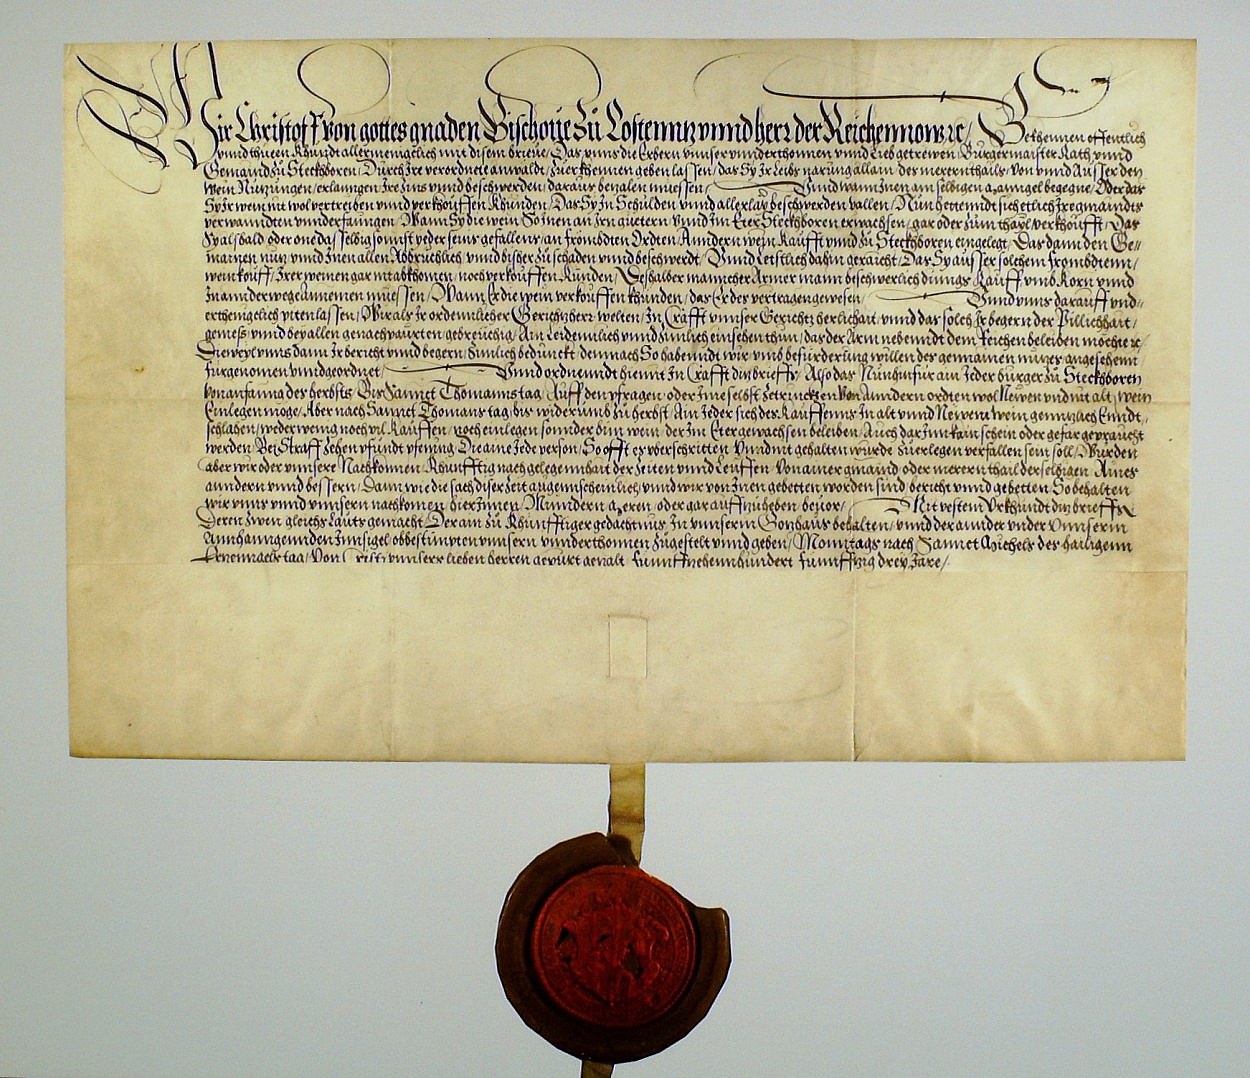 Wir Christoff von gottes gnaden Bischove zu Costenntz vnnd herr der Reichennow ꝛc / Bekhennen offentlich
vnnd thuen khundt allermenigclich mit disem brieue / Das vnns die Erbern vnnser vnnderthonnen vnnd Lieb getrewen / Burgermaister Rath vnnd
Gemaind zu Steckhboren / Durch Ire verordnete anwaldt / Zuerkhennen geben lassen / das Sy Ir Leibs narung allain / des merernthails / von vnnd Ausser den
wein Nutzungen / erlanngen Ire Zins vnnd beschwerden / daraus bezalen muessen / Vnnd wann Inen am selbigen manngel begegne / Oder das
Sy Ir wein nit wol vertreiben vnnd verkhouffen khünden / Das Sy In Schulden vnnd allerlay beschwerden vallen / Nun befenndt sich etlich Ire gmaindts
verwanndten vnnderfanngen / Wann Sy die wein So Inen an Irn guetern vnnd Im Eter Steckhboren erwachsen / gar oder Zum thayl verkhoufft / Das
Sy alsbald oder one das selbig sonnst yeder seins gefallens / an frombdten Ordten Anndern wein kaufft vnnd zu Steckhboren eingelegt / Das dann den Ge-
mainen nutz vnnd Inen allen Abbrüchlich vnnd bisher zu schaden vnnd beschwerdt / Vnnd Letstlich dahin geraicht / Das Sy ausser solchem frombdtenn /
wein kouff / Irer weinen gar nit abkhomen / noch verkouffen künden / Deshalber mannicher Armer mann beschwerlich dinngs kauff vmb Korn vnnd
In annder wege Annemen muessen / Wann Er die wein verkouffen khünden / das Er des vertragen gewesen / Vnnd vnns darauff vnd-
erthenigclich piten lassen / Wir als Ir ordennlicher Gerichtzherr welten / In Crafft vnnser Gerichtz herlichait / vnnd das solch Ir begern der Pillichhait /
gemeß / vnnd bey allen genachpaurten / gebreuchig / Ain Leidennlich vnnd zimlich einsehen thun / das der Arm nebenndt dem Reichen beleiben möchte ꝛc /
Dieweyl vnns dann Ir bericht vnnd begern / Zimlich bedunckt / demnach So habenndt wir vmb befürderung willen des gemainen nutzes angesehenn
fürgenomen vnnd geordnet / Vnnd ordnenndt hiemit In Crafft ditz brieffs / Also das Nun hinfür ain Jeder burger zu Steckhboren
von anfanng des herbsts Bis Sannct Thomanns tag Auff den pfragen / oder Ime selbst Zetrincken von Anndern ordten wol Newen vnd nit alt / wein
Einlegen möge / Aber nach Sannct Thomans tag / bis widerumb zu herbst Ain Jeder sich des Kauffenns In alt vnnd Newem wein genntzlich Enndt /
schlahen / weder wenig noch vil kauffen / noch einlegen sonnder bim wein der Im Eter gewachsen beleiben / Auch dar Inn kain schein oder gefar gepraucht
werden Bei Straff Zehen pfundt pfenning Die aine Jede person / So offt es verschritten Vnnd nit gehalten würde Zuerlegen verfallen sein soll / Wurden
aber wir oder vnnsere Nachkomen khunfftig nach gelegennhait der Zeiten vnnd Leuffen / Von ainer gmaind oder merern thail derselbigen Aines
anndern vnnd bessern / Dann wie die sach diser Zeit augennscheinlich / vnnd wir von Inen gebetten worden sind bericht vnnd gebetten So behalten
wir vnns vnnd vnnsern nachkomen hier Innen / Minndern meren / oder gar auffzuheben beuor / Mit vestem Vrkhundt ditz brieffs
Deren zwen gleichs Lauts gemacht Der ain zu khunfftiger gedachtnus In vnnserm Gotzhaus behalten / vnnd der annder vnder Vnnserm
Annhanngenden Innsigel obbestimpten vnnsern vnnderthonnen zugestelt vnnd geben / Monntags nach Sannct Michels des hailigenn
Ertzenngels tag / Von Cristi vnnsers lieben herren gepurt gezalt funffzehennhundert funffzig drey Jare /